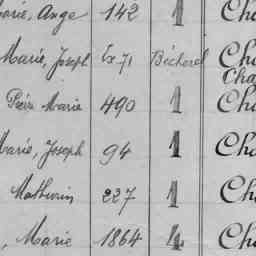 Marie, Ange 142 1 Cha
Marie, Joseph Ex 71 Bécherel Cha
Cha
Pierre Marie 490 1 Cha
Marie, Joseph 94 1 Cha
Mathurin 227 1 Cha
, Marie 1864 4 Cha